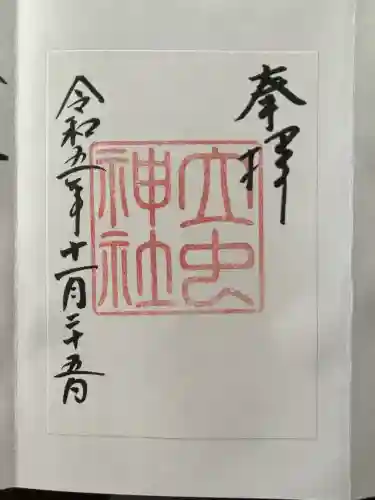 奉拝
大虫
神社
令和五年十一月二十五日